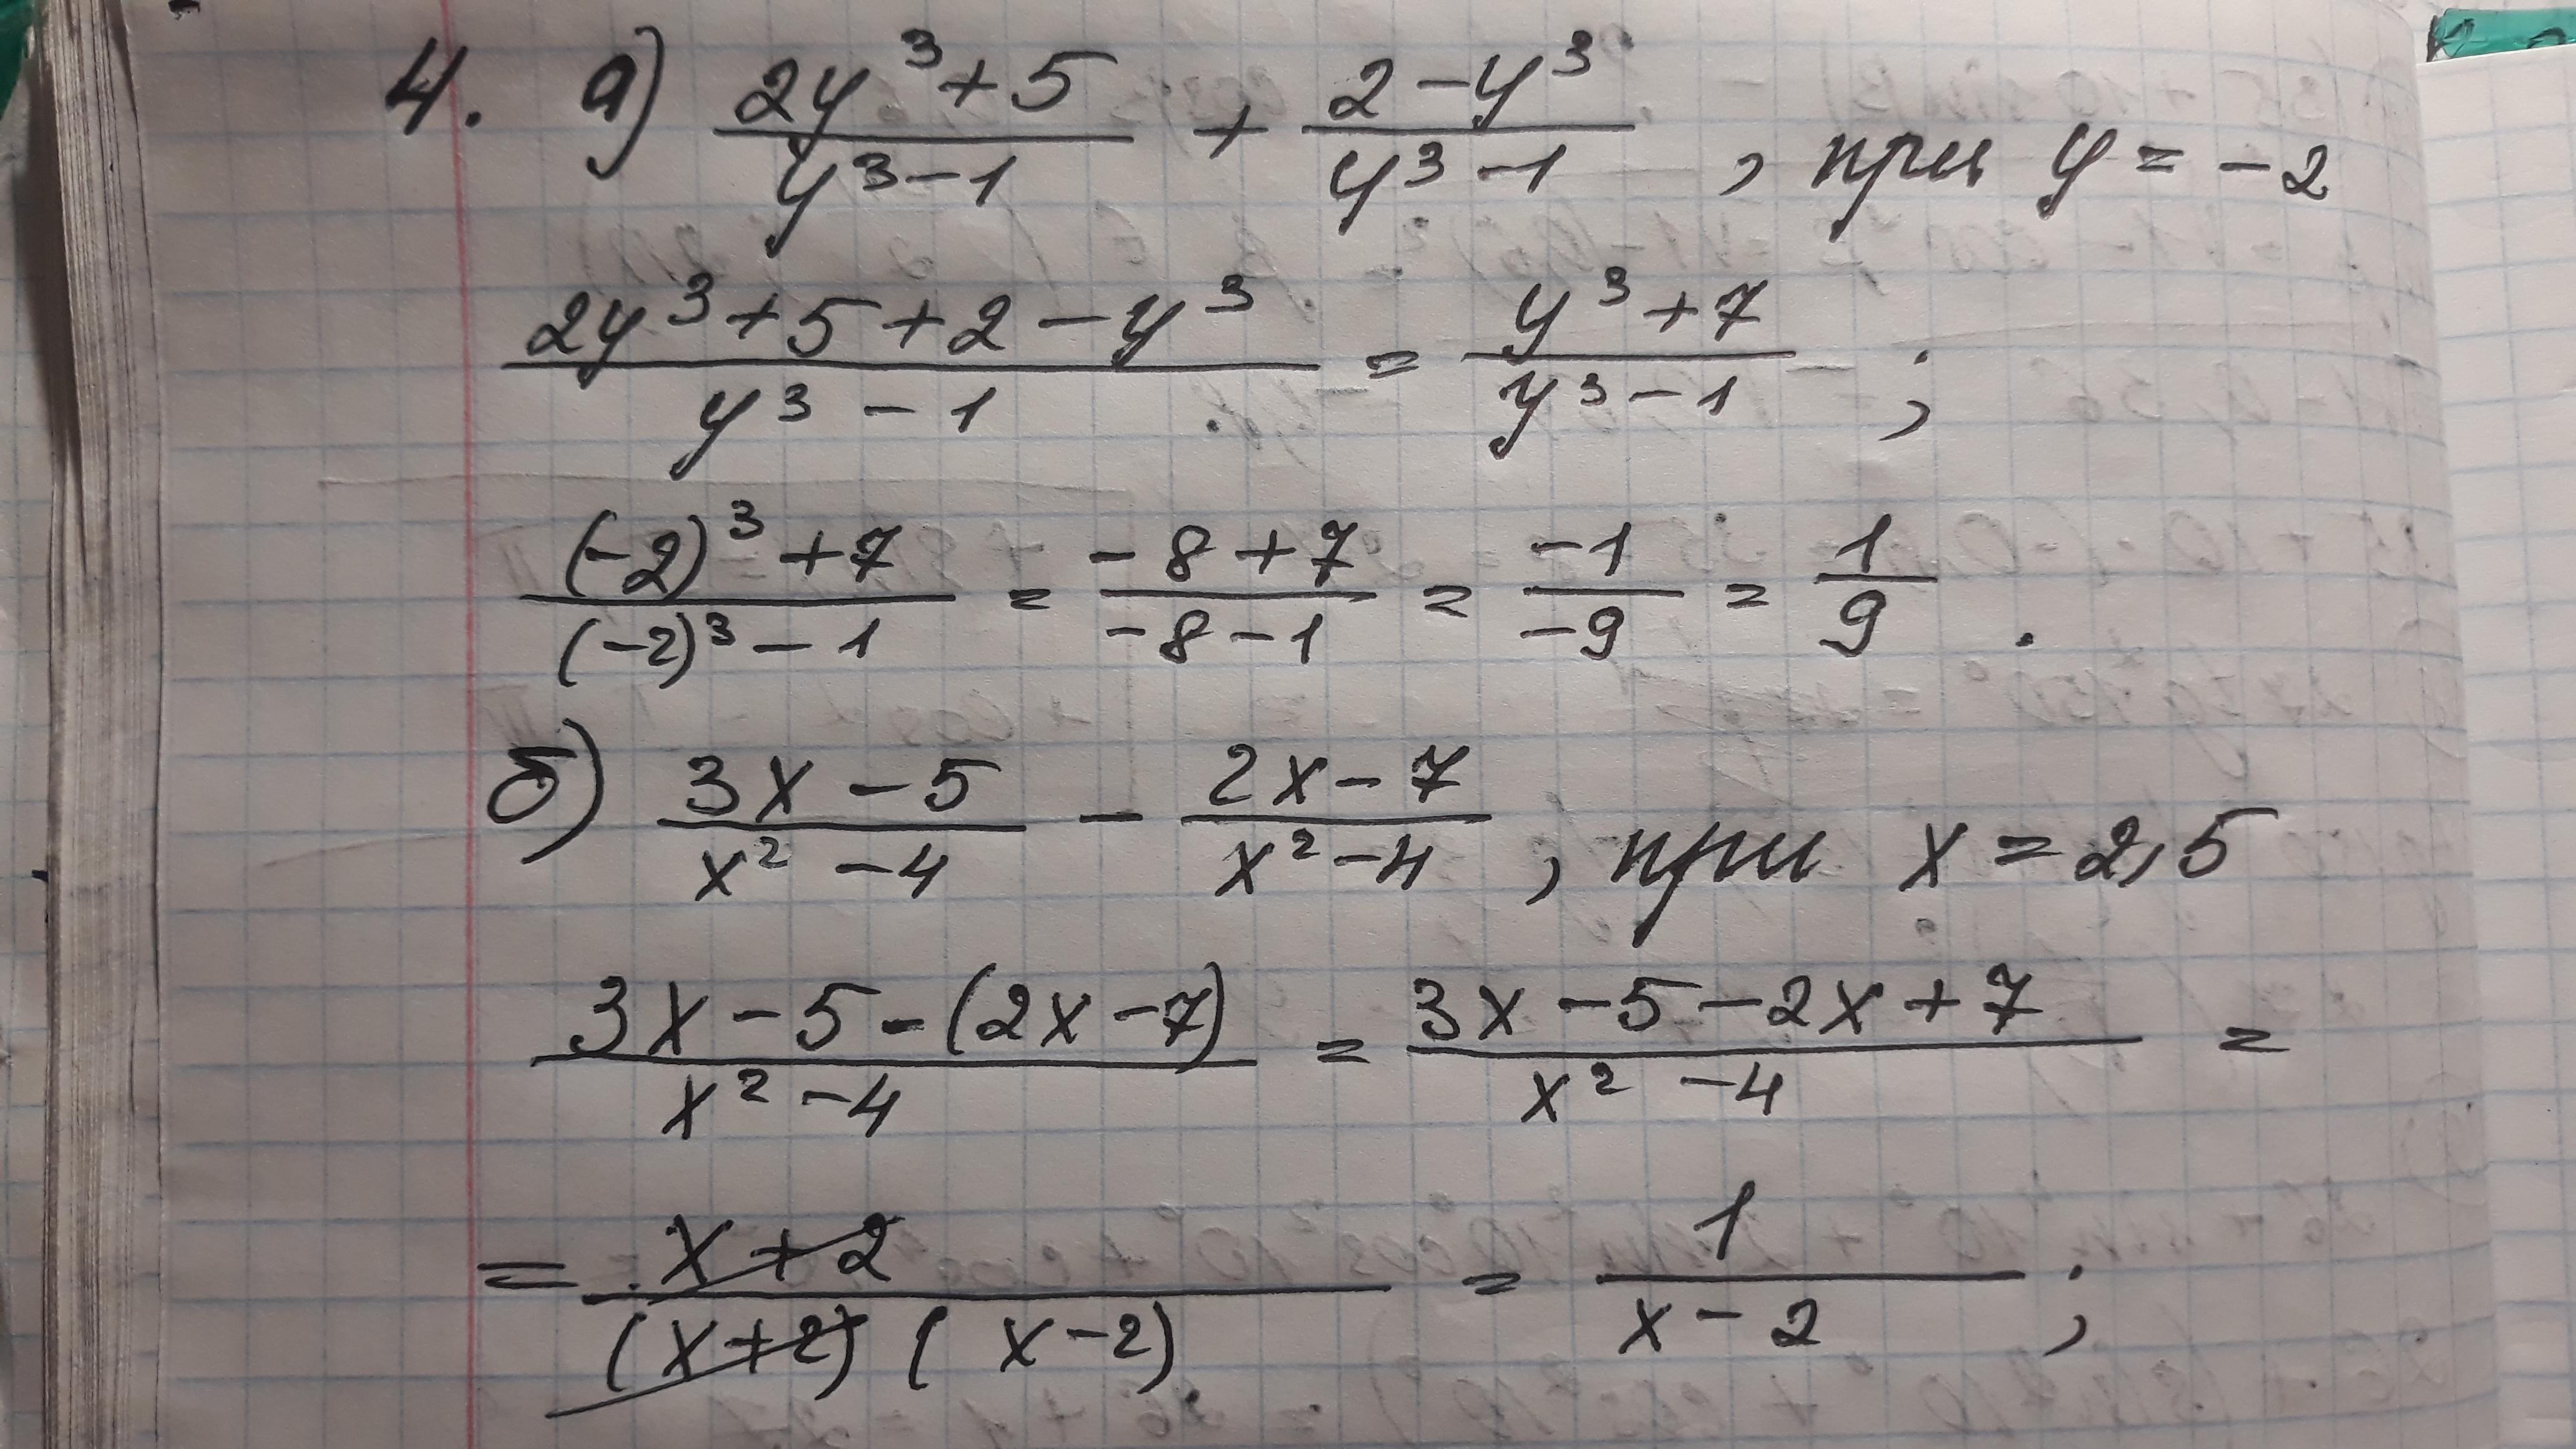 4. а) (2y³+5)/(y³-1) + (2-y³)/(y³-1) , при y = -2
(2y³+5+2-y³)/(y³-1) = (y³+7)/(y³-1) ;
((-2)³+7)/((-2)³-1) = (-8+7)/(-8-1) = (-1)/(-9) = 1/9 .
б) (3x-5)/(x²-4) - (2x-7)/(x²-4) , при x = 2,5
(3x-5-(2x-7))/(x²-4) = (3x-5-2x+7)/(x²-4) =
= (x+2)/((x+2)(x-2)) = 1/(x-2) ;